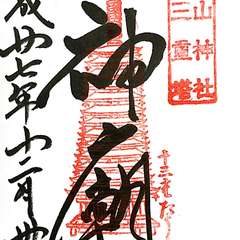 山神社
三重塔
神廟
成廿七年十二月廿